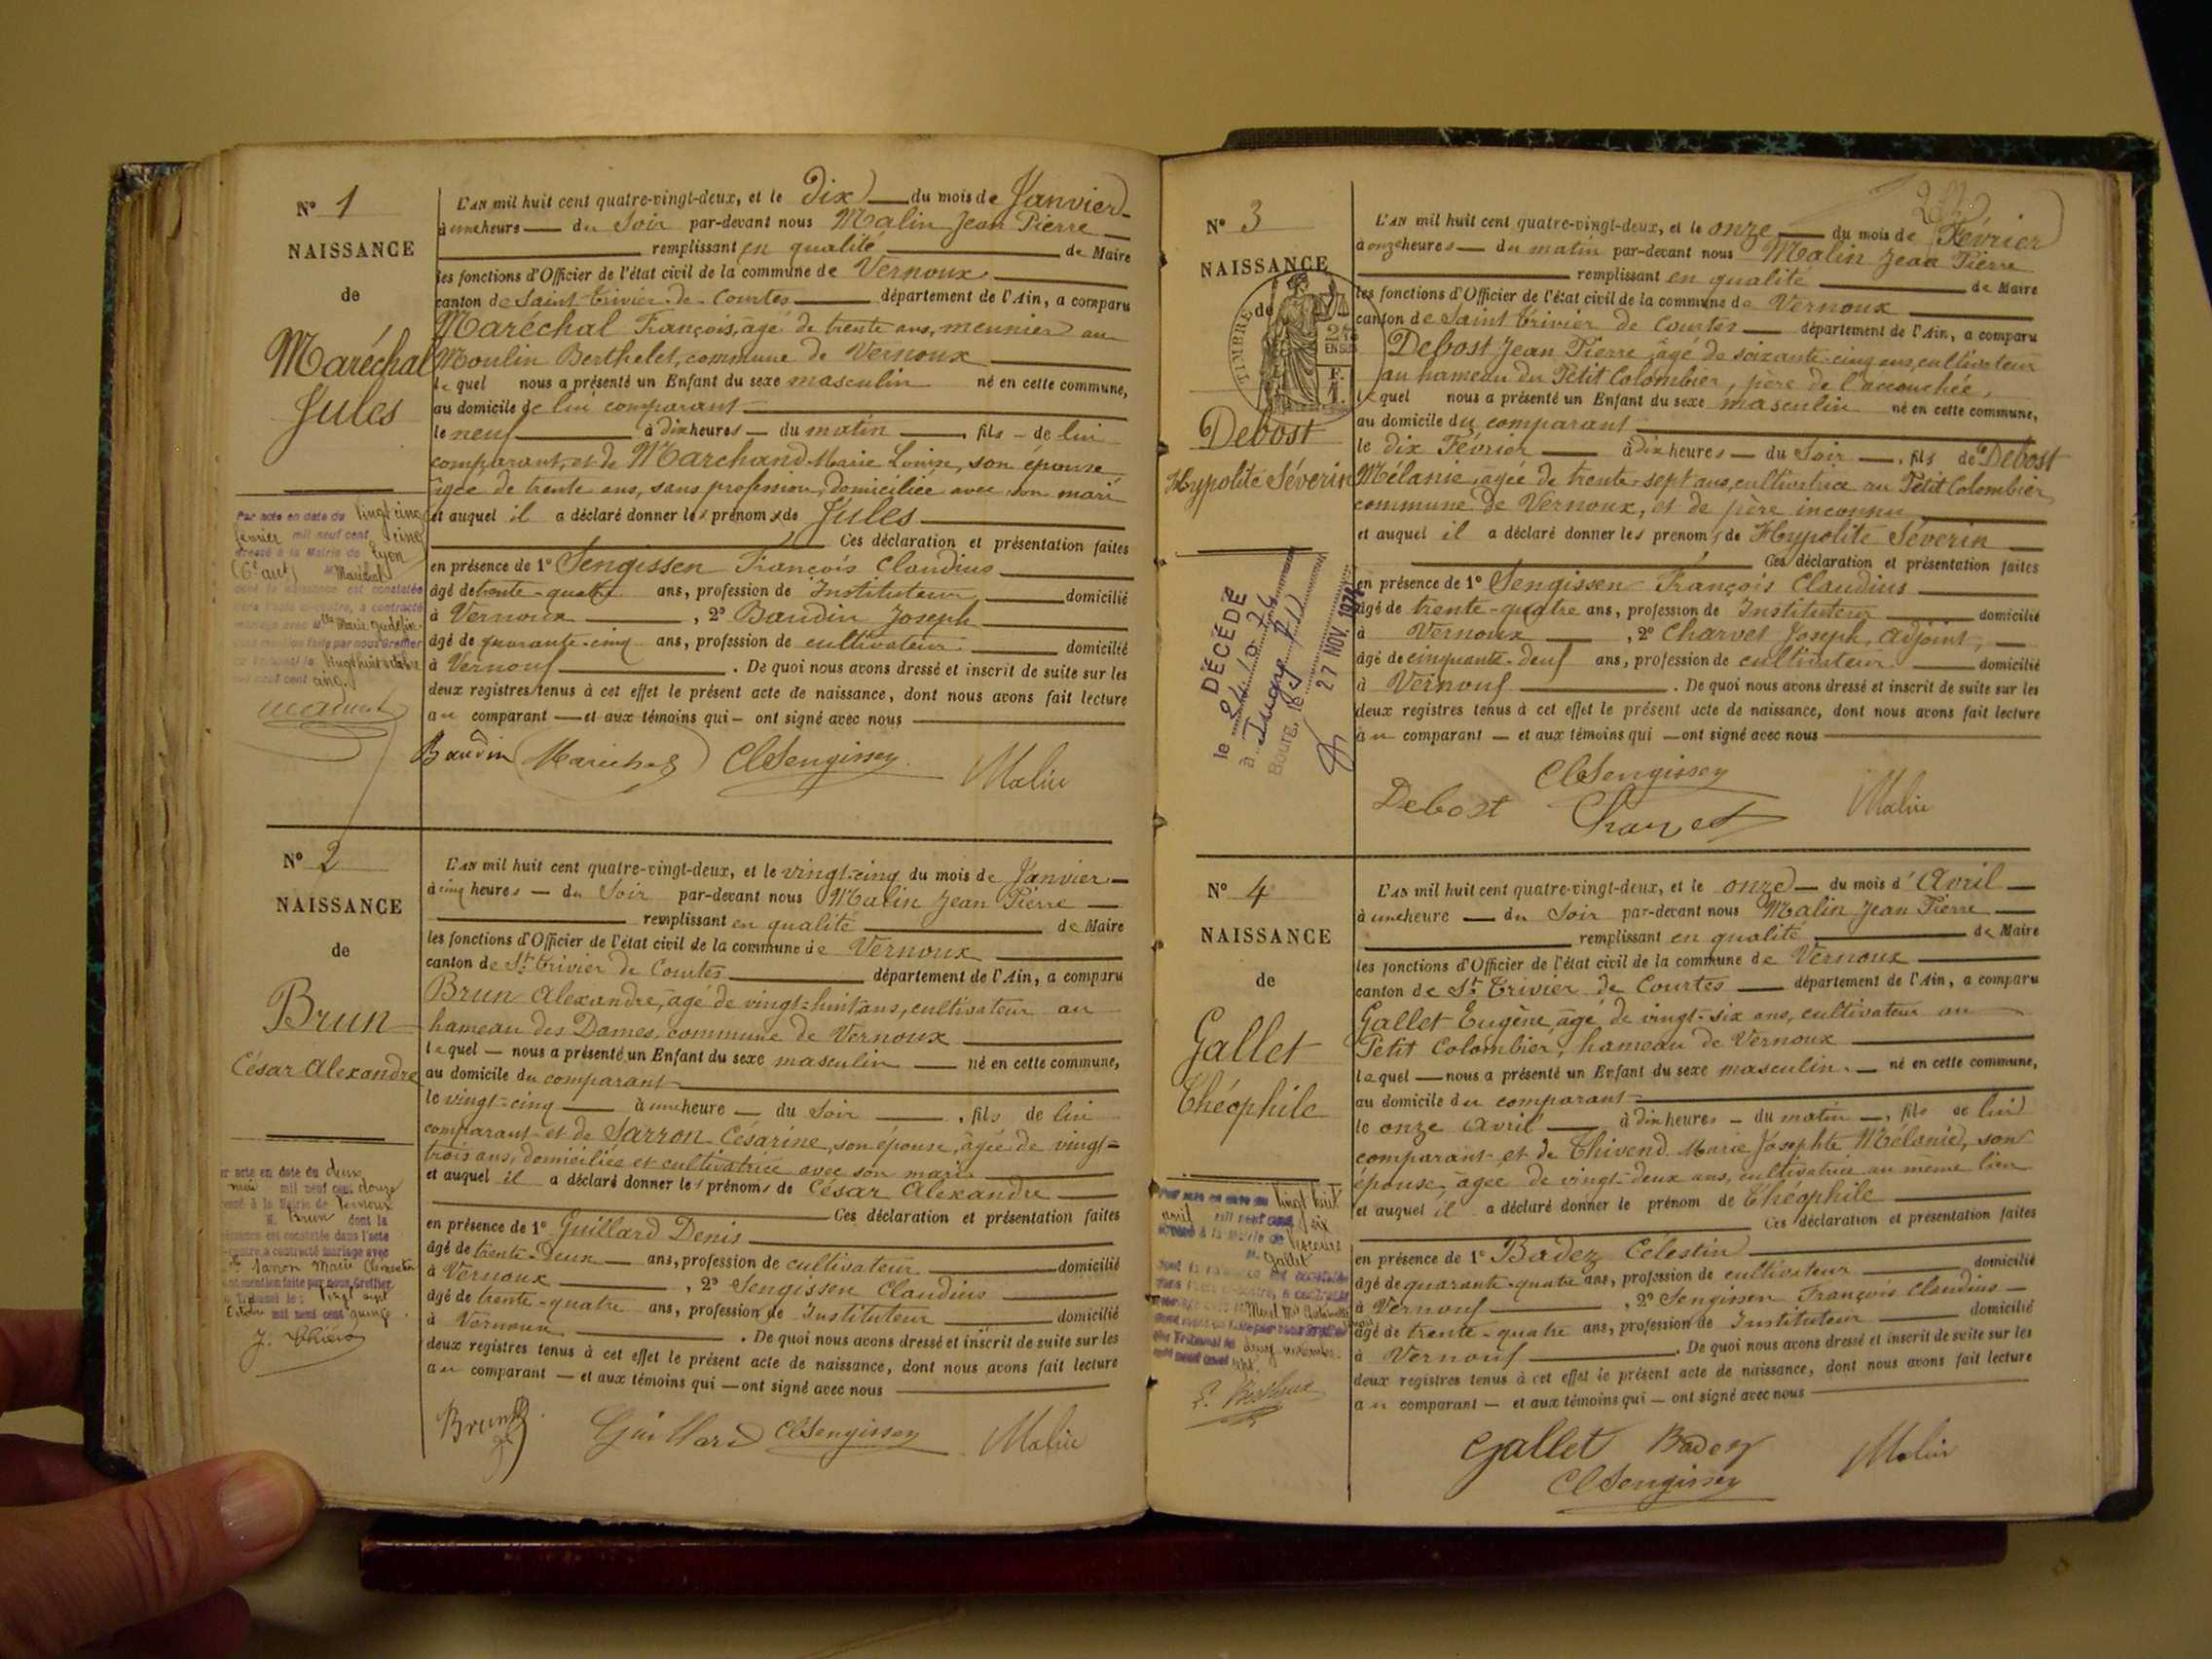 N° 1
NAISSANCE
de
Maréchal
Jules
Par acte en date du vingt cinq
février mil neuf cent cinq
dressé à la Mairie de Lyon
(6e arrt) M Maréchal
dont la naissance est constatée
dans l'acte ci-contre, a contracté
mariage avec Mlle Marie
Dont mention faite par nous Greffier
du Tribunal le vingt huit octobre
mil neuf cent cinq.
L'AN mil huit cent quatre-vingt-deux, et le dix du mois de Janvier
à une heure du Soir par-devant nous Malin Jean Pierre
remplissant en qualité de Maire
les fonctions d'Officier de l'état civil de la commune de Vernoux
canton de Saint Trivier de Courtes département de l'Ain, a comparu
Maréchal François, âgé de trente ans, meunier au
Moulin Berthelet, commune de Vernoux
le quel nous a présenté un Enfant du sexe masculin né en cette commune,
au domicile de lui comparant
le neuf à dix heures du matin, fils de lui
comparant, et de Marchand Marie Louise, son épouse
âgée de trente ans, sans profession, domiciliée avec son mari
et auquel il a déclaré donner les prénoms de Jules
Ces déclaration et présentation faites
en présence de 1° Sengissen François Claudius
âgé de trente-quatre ans, profession de Instituteur domicilié
à Vernoux, 2° Baudin Joseph
âgé de quarante-cinq ans, profession de cultivateur domicilié
à Vernoux. De quoi nous avons dressé et inscrit de suite sur les
deux registres tenus à cet effet le présent acte de naissance, dont nous avons fait lecture
au comparant et aux témoins qui ont signé avec nous
Baudin Maréchal ClSengissen Malin
N° 2
NAISSANCE
de
Brun
César Alexandre
er acte en date du deux
mai mil neuf cent douze
ressé à la Mairie de Vernoux
M. Brun dont la
naissance est constatée dans l'acte
contre, a contracté mariage avec
Marie
ont mention faite par nous, Greffier
Tribunal le: vingt sept
Octobre mil neuf cent quinze.
L'AN mil huit cent quatre-vingt-deux, et le vingt-cinq du mois de Janvier
à cinq heures du Soir par-devant nous Malin Jean Pierre
remplissant en qualité de Maire
les fonctions d'Officier de l'état civil de la commune de Vernoux
canton de St Trivier de Courtes département de l'Ain, a comparu
Brun Alexandre, âgé de vingt-huit ans, cultivateur au
hameau des Dames, commune de Vernoux
le quel nous a présenté un Enfant du sexe masculin né en cette commune,
au domicile du comparant
le vingt-cinq à une heure du Soir, fils de lui
comparant et de Sarron Césarine, son épouse, âgée de vingt-
trois ans, domiciliée et cultivatrice avec son mari
et auquel il a déclaré donner les prénoms de César Alexandre
Ces déclaration et présentation faites
en présence de 1° Guillard Denis
âgé de trente-deux ans, profession de cultivateur domicilié
à Vernoux, 2° Sengissen Claudius
âgé de trente-quatre ans, profession de Instituteur domicilié
à Vernoux. De quoi nous avons dressé et inscrit de suite sur les
deux registres tenus à cet effet le présent acte de naissance, dont nous avons fait lecture
au comparant et aux témoins qui ont signé avec nous
Brun Guillard ClSengissen Malin
N° 3
NAISSANCE
de
TIMBRE
Debost
Hypolite Séverin
DÉCÉDÉ
le 24.10.76
à
BOURG, le
27 NOV. 1976
L'AN mil huit cent quatre-vingt-deux, et le onze du mois de Février
à onze heures du matin par-devant nous Malin Jean Pierre
remplissant en qualité de Maire
les fonctions d'Officier de l'état civil de la commune de Vernoux
canton de Saint Trivier de Courtes département de l'Ain, a comparu
Debost Jean Pierre âgé de soixante-cinq ans, cultivateur
au hameau du Petit Colombier, père de l'accouchée,
le quel nous a présenté un Enfant du sexe masculin né en cette commune,
au domicile du comparant
le dix Février à dix heures du Soir, fils de Debost
Mélanie, âgée de trente-sept ans, cultivatrice au Petit Colombier
commune de Vernoux, et de père inconnu
et auquel il a déclaré donner les prénoms de Hypolite Séverin
Ces déclaration et présentation faites
en présence de 1° Sengissen François Claudius
âgé de trente-quatre ans, profession de Instituteur domicilié
à Vernoux, 2° Charvet Joseph, adjoint,
âgé de cinquante-deux ans, profession de cultivateur domicilié
à Vernoux. De quoi nous avons dressé et inscrit de suite sur les
deux registres tenus à cet effet le présent acte de naissance, dont nous avons fait lecture
au comparant et aux témoins qui ont signé avec nous
ClSengissen
Debost Charvet Malin
N° 4
NAISSANCE
de
Gallet
Théophile
Par acte en date du vingt huit
avril mil neuf cent six
dressé à la Mairie de Lescours
M. Gallet
L'AN mil huit cent quatre-vingt-deux, et le onze du mois d'Avril
à une heure du Soir par-devant nous Malin Jean Pierre
remplissant en qualité de Maire
les fonctions d'Officier de l'état civil de la commune de Vernoux
canton de St Trivier de Courtes département de l'Ain, a comparu
Gallet Eugène, âgé de vingt-six ans, cultivateur au
Petit Colombier, hameau de Vernoux
lequel nous a présenté un Enfant du sexe masculin né en cette commune,
au domicile du comparant
le onze Avril à dix heures du matin, fils de lui
comparant et de Thivend Marie Josephte Mélanie, son
épouse, âgée de vingt-deux ans, cultivatrice au même lieu
et auquel il a déclaré donner le prénom de Théophile
Ces déclaration et présentation faites
en présence de 1° Badez Célestin domicilié
âgé de quarante-quatre ans, profession de cultivateur
à Vernoux, 2° Sengissen François Claudius
âgé de trente-quatre ans, profession de Instituteur domicilié
à Vernoux. De quoi nous avons dressé et inscrit de suite sur les
deux registres tenus à cet effet le présent acte de naissance, dont nous avons fait lecture
au comparant et aux témoins qui ont signé avec nous
Gallet Badez Malin
ClSengissen